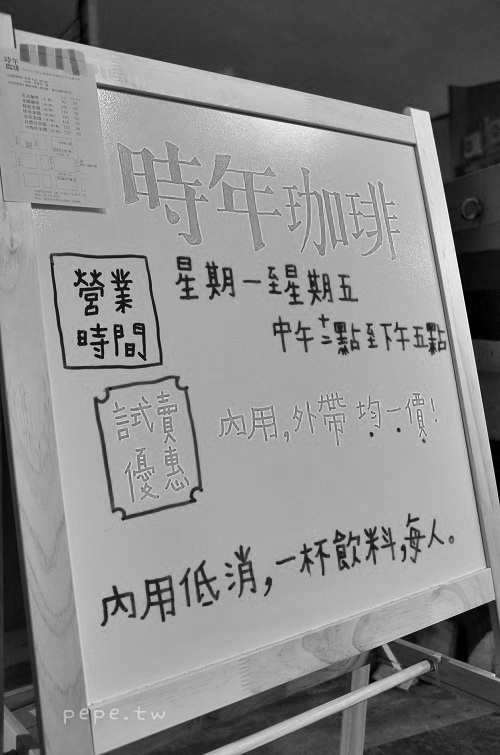 時年珈琲
營業
時間
星期一至星期五
中午十二點至下午五點
試賣
優惠
內用,外帶 均一價!
內用低消,一杯飲料,每人。
pepe.tw